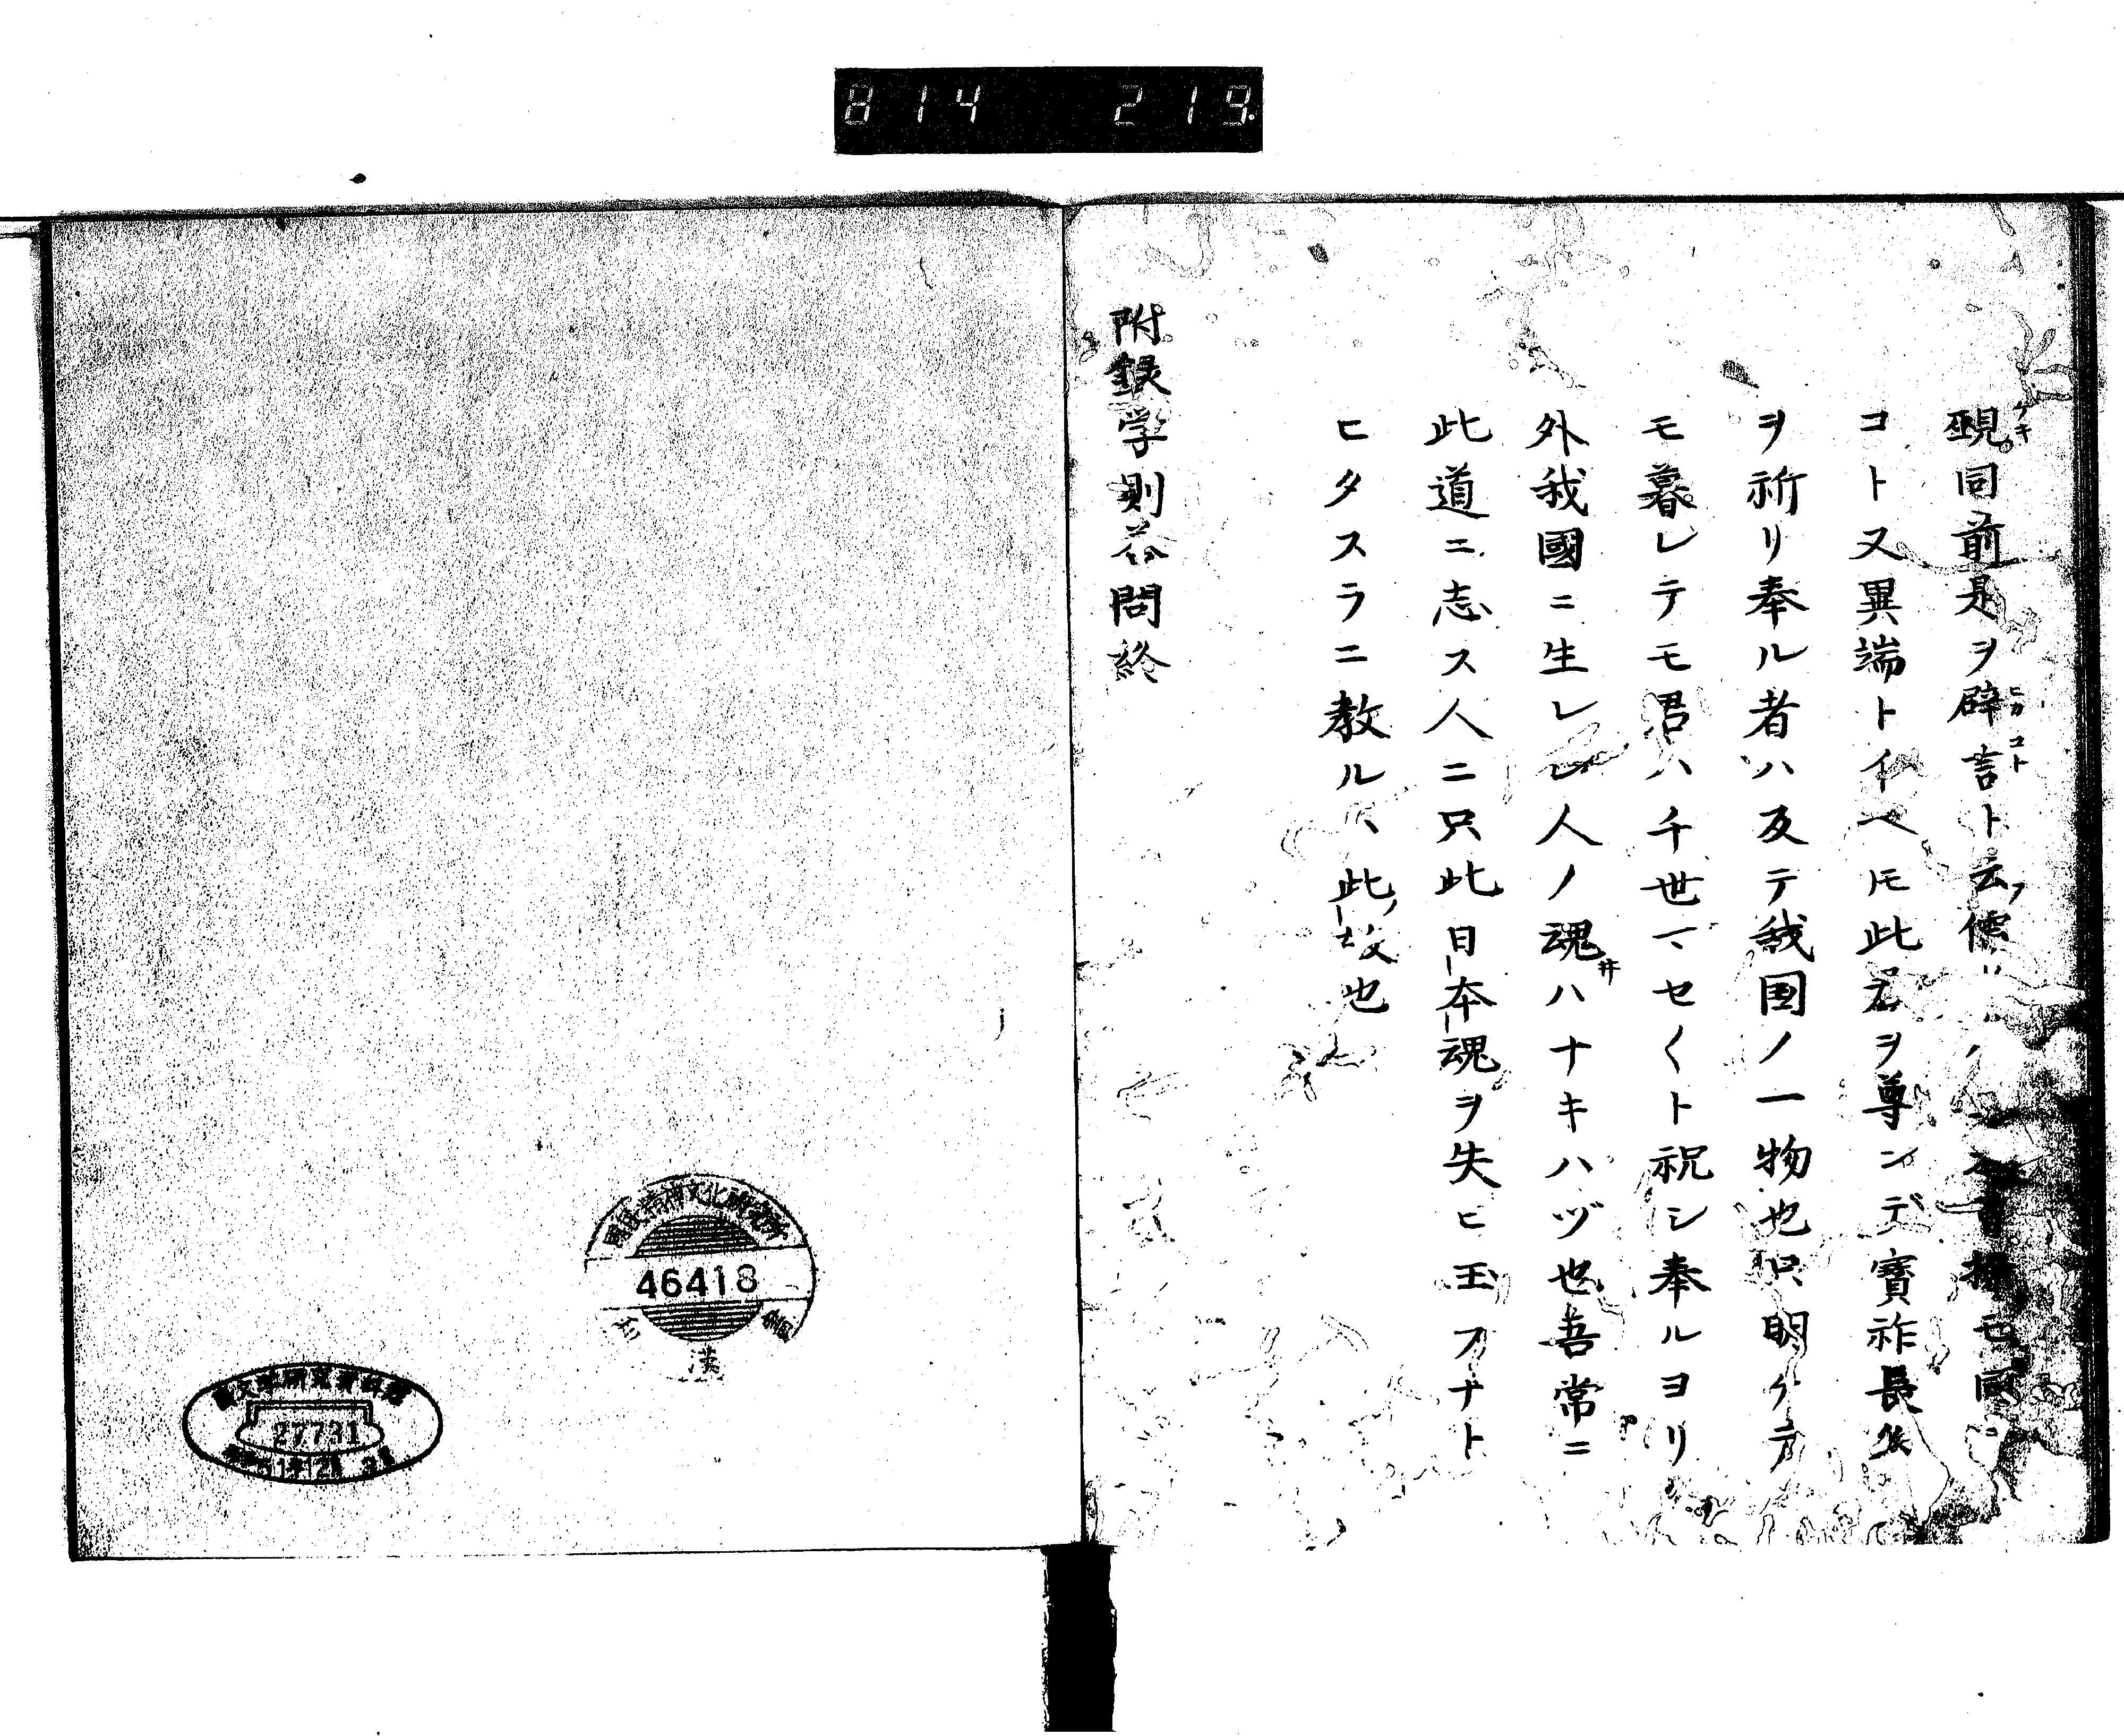 814 219
覡同前是ヲ僻言ト云フ儒
コト又異端トイヘ𪜈此君ヲ尊ンデ寳祚長久
ヲ祈リ奉ル者ハ反テ我国ノ一物也只明ケテ
モ暮レテモ君ハ千世マセ〱ト祝シ奉ルヨリ
外我國ニ生レシ人ノ魂ハナキハヅ也吾常ニ
此道ニ志ス人ニ只此日本魂ヲ失ヒ玉フナト
ヒタスラニ教ルハ此ノ故也
附録学則荅問終
國民精神文化研究所
46418
和
漢
書
國文学研究資料館
27731